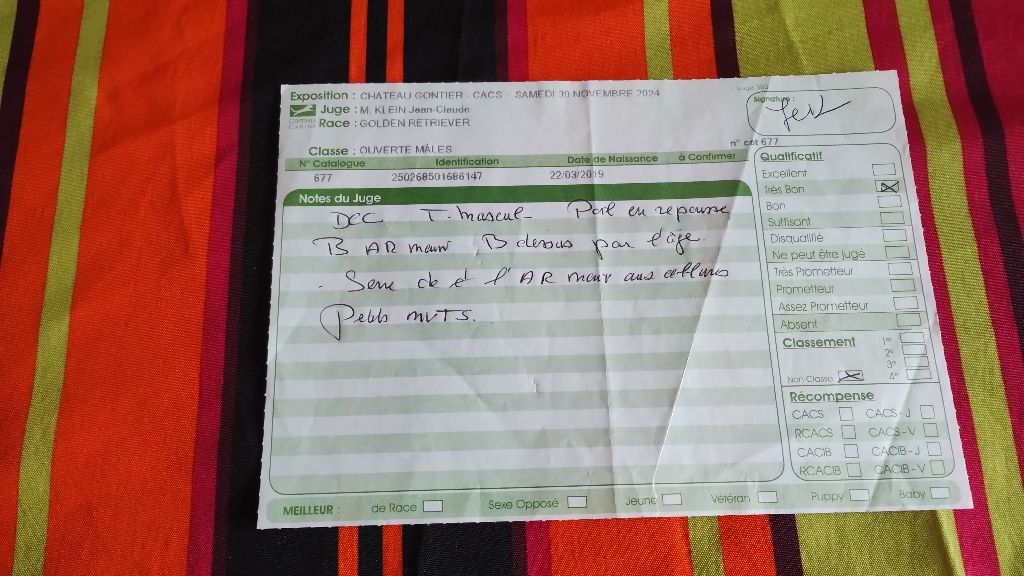 page 303
Exposition : CHATEAU GONTIER - CACS - SAMEDI 30 NOVEMBRE 2024
Signature :
Juge : M. KLEIN Jean-Claude
CENTRALE CANINE
Race : GOLDEN RETRIEVER
n° cat 677
Classe : OUVERTE MÂLES
N° Catalogue Identification Date de Naissance à Confirmer
677 250268501686147 22/03/2019
Notes du Juge
DEC T. mascul- Poil en repousse
B AR main B dessus par l'âge.
. Serre de et l'AR aux allures
Petits MVTS.
Qualificatif
Excellent
Très Bon
Bon
Suffisant
Disqualifié
Ne peut être jugé
Très Prometteur
Prometteur
Assez Prometteur
Absent
Classement
1er
2e
3e
Non Classé 4e
Récompense
CACS CACS - J
RCACS CACS - V
CACIB CACIB - J
RCACIB CACIB - V
MEILLEUR : de Race Sexe Opposé Jeune Vétéran Puppy Baby